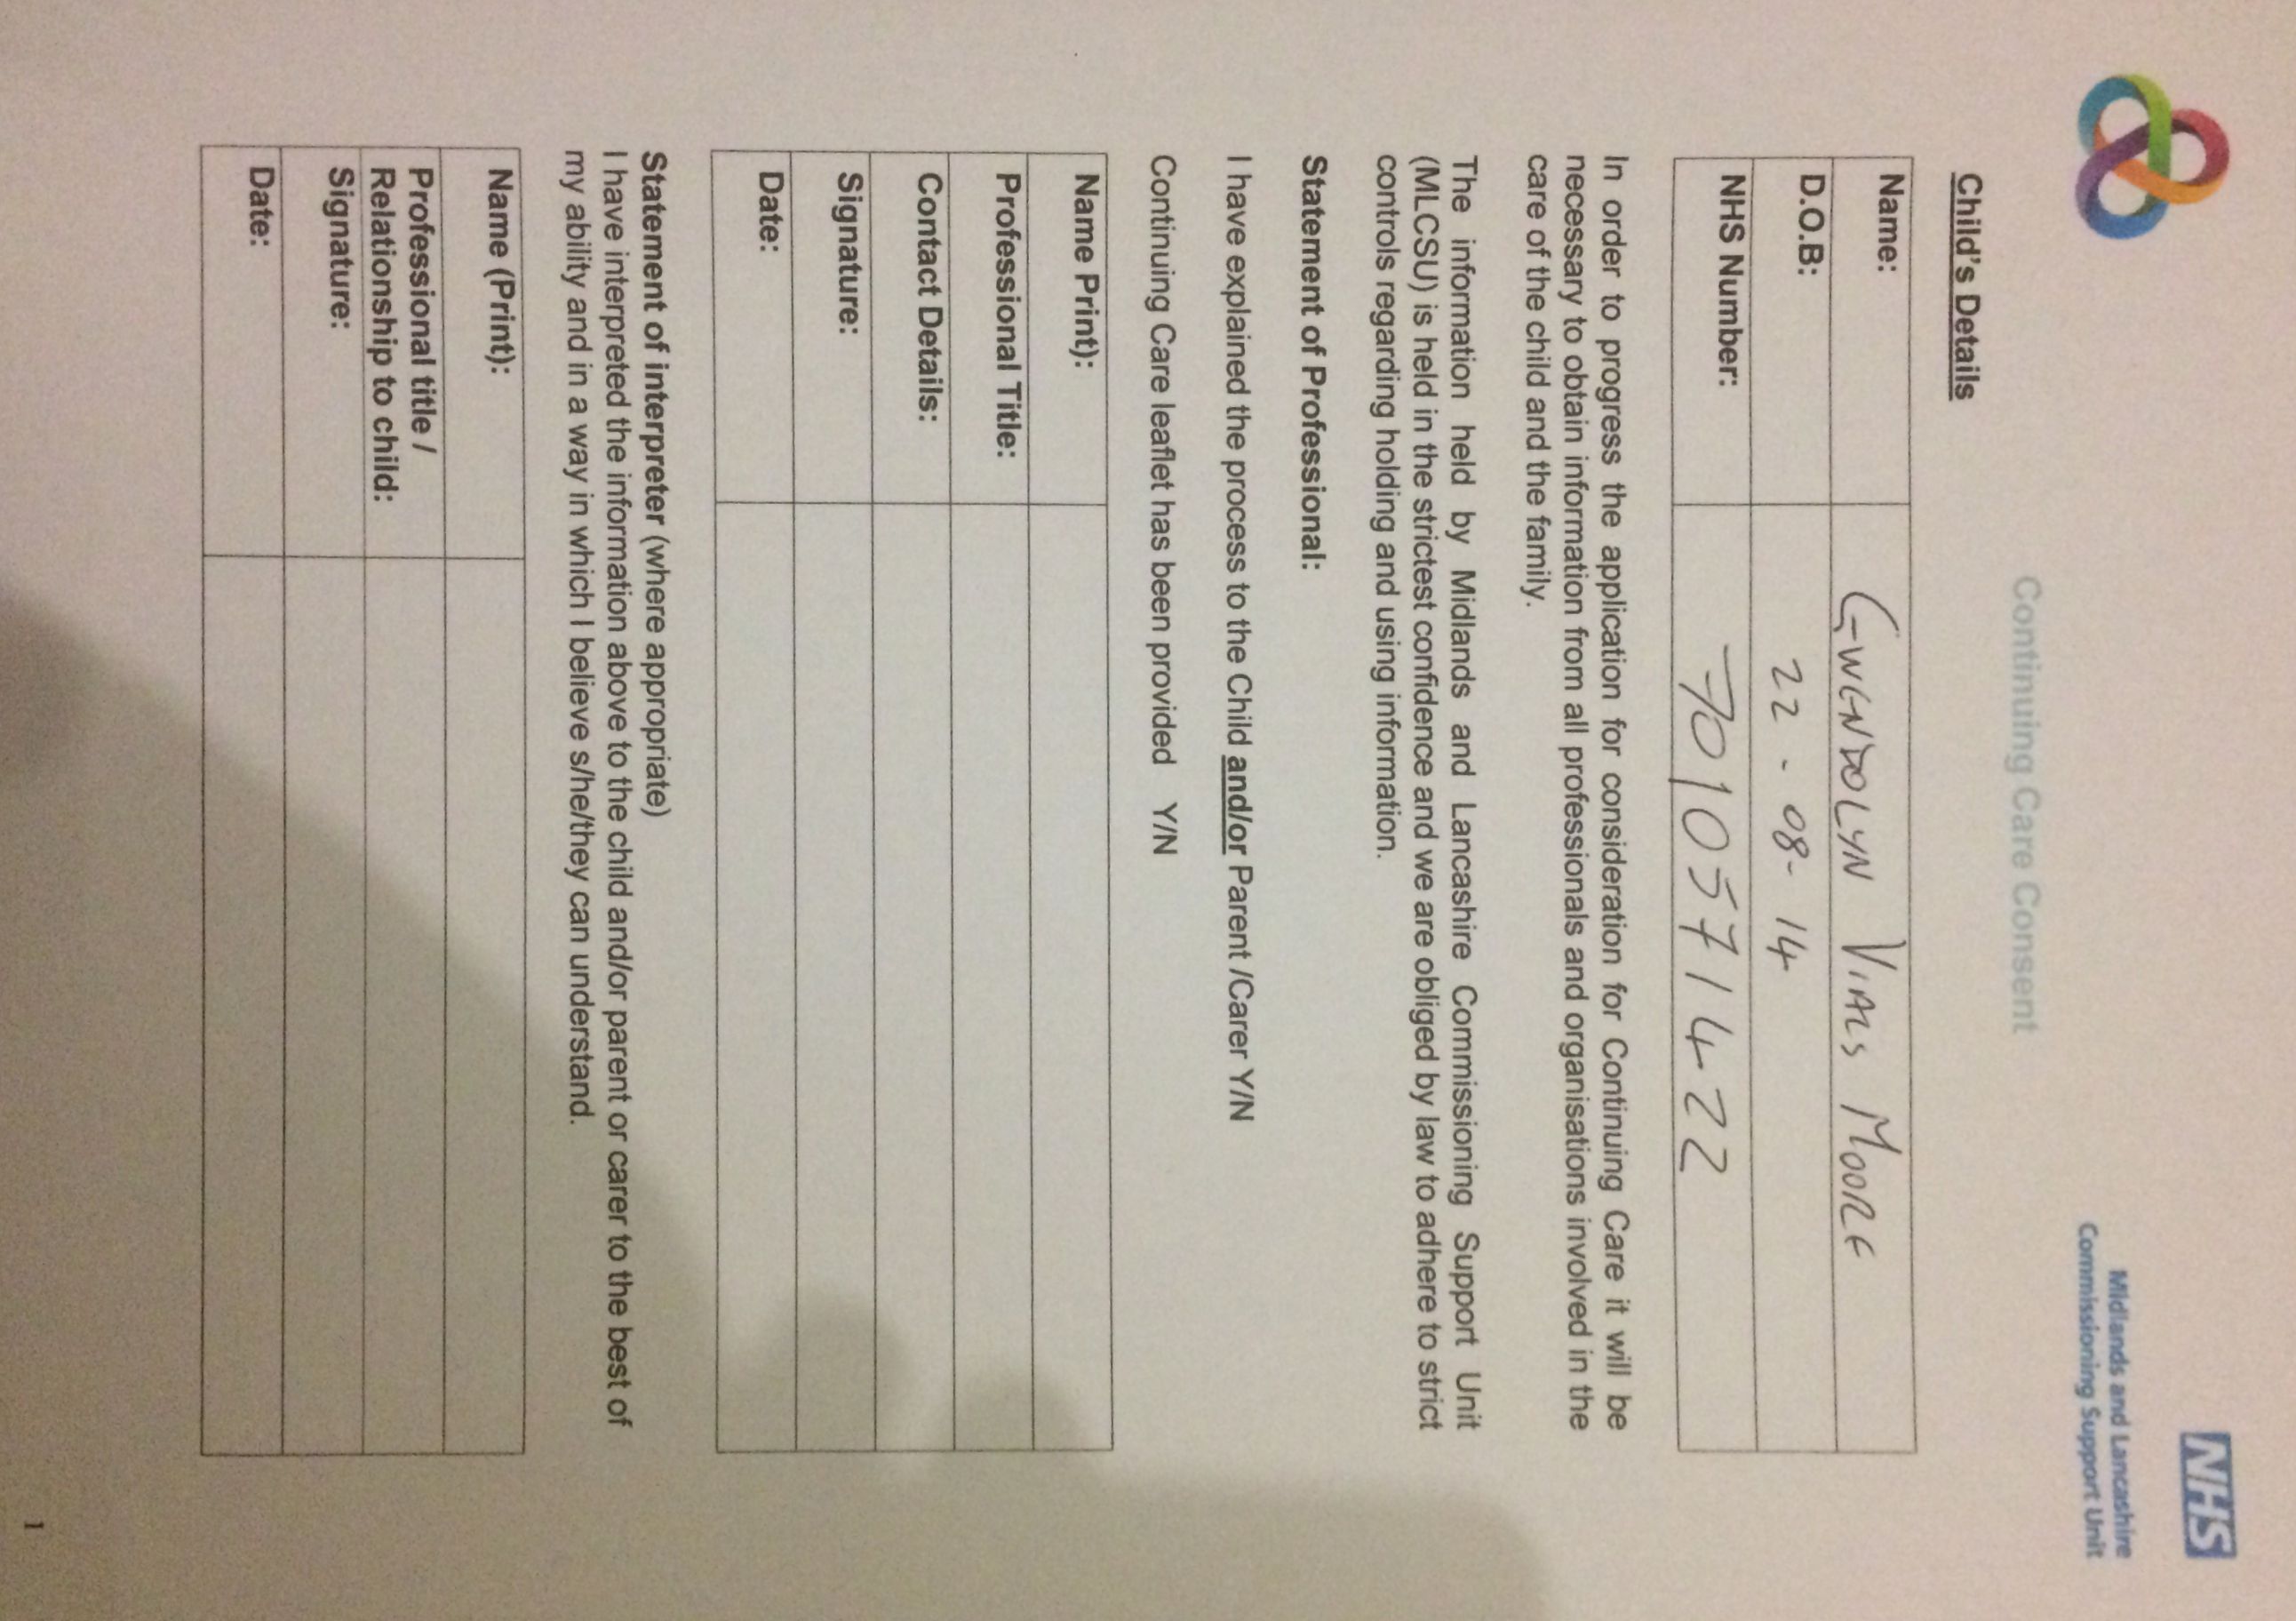 NHS
Midlands and Lancashire
Commissioning Support Unit
Continuing Care Consent
Child's Details
Name: GWENDOLYN VIALS MOORE
D.O.B: 22 - 08 - 14
NHS Number: 7010571422
In order to progress the application for consideration for Continuing Care it will be
necessary to obtain information from all professionals and organisations involved in the
care of the child and the family.
The information held by Midlands and Lancashire Commissioning Support Unit
(MLCSU) is held in the strictest confidence and we are obliged by law to adhere to strict
controls regarding holding and using information.
Statement of Professional:
I have explained the process to the Child and/or Parent /Carer Y/N
Continuing Care leaflet has been provided Y/N
Name Print):
Professional Title:
Contact Details:
Signature:
Date:
Statement of interpreter (where appropriate)
I have interpreted the information above to the child and/or parent or carer to the best of
my ability and in a way in which I believe s/he/they can understand.
Name (Print):
Professional title /
Relationship to child:
Signature:
Date:
1